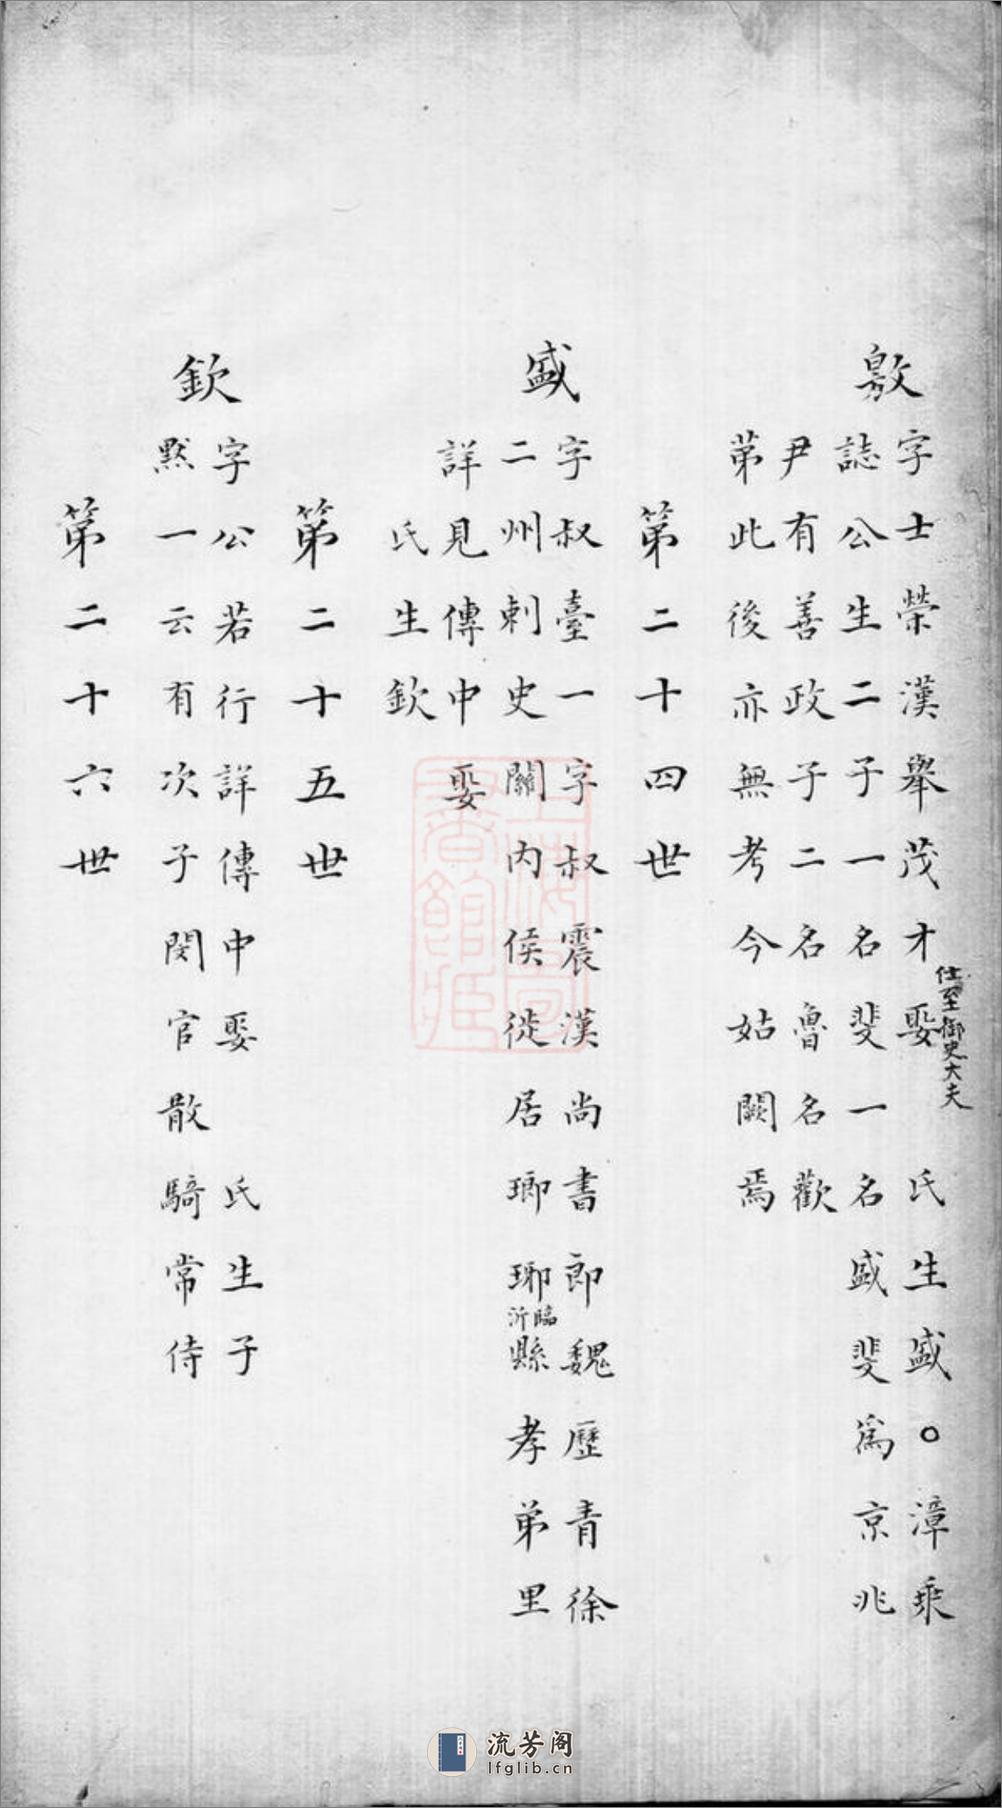 敫
字士榮漢舉茂才娶　氏生盛○漳乘
仕至御史大夫
誌公生二子一名斐一名盛斐為京兆
尹有善政子二名魯名歡
苐此後亦無考今姑闕焉
第二十四世
盛
字叔臺一字叔震漢尚書郎魏歷青徐
二州刺史關内侯徙居瑯琊縣孝弟里
臨沂
詳見傳中娶
氏生欽
第二十五世
欽
字公若行詳傳中娶　氏生子
黙一云有次子閔官散騎常侍
第二十六世
上海圖書館藏
流芳阁
lfglib.cn